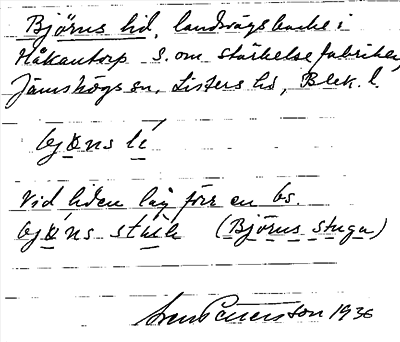 Björns lid, landsvägsbacke i
Håkantorp S. om stärkelsefabriken,
Jämshögs sn, Listers hd, Blek. l.
bjɷns lí
Vid liden låg förr en bs.
(Björns stuga)
1936